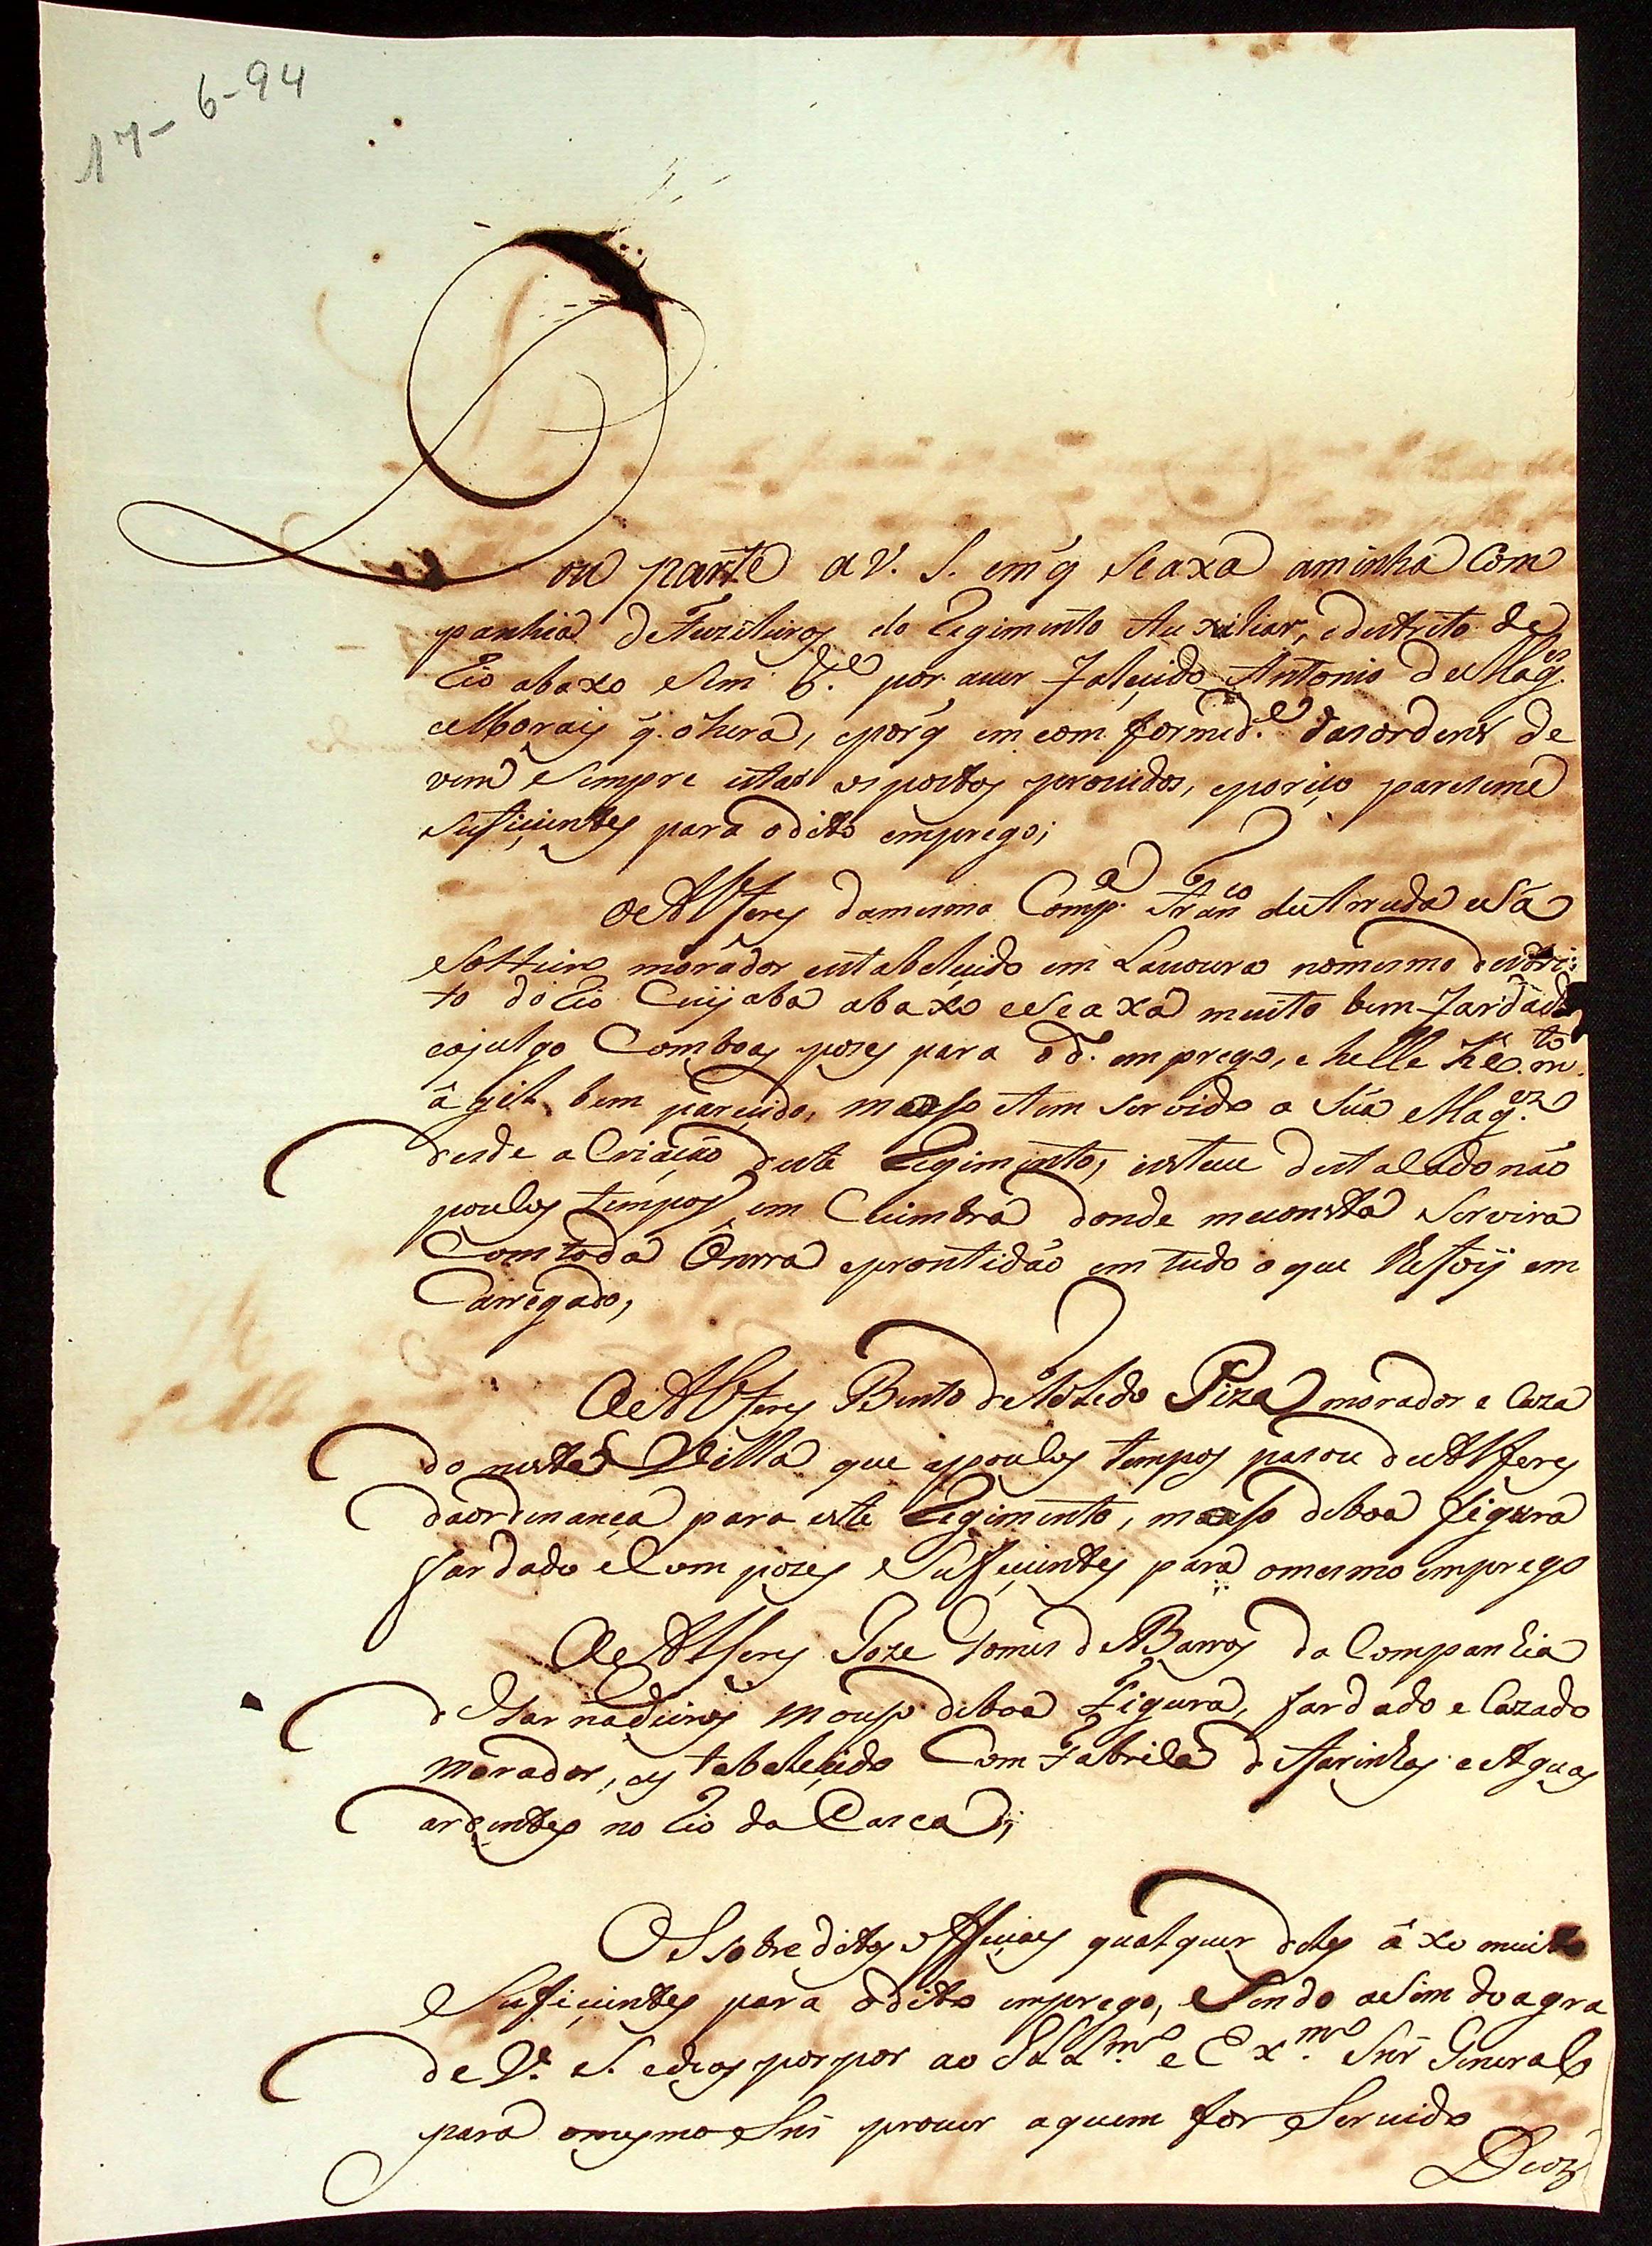 17-6-94
Dou parte a V. S. em q̃ se axa a minha Com
panhia de Fuzileiros do Regimento Auxiliar, e destrito de
Rio abaxo sem T.e por aver Falecido Antonio de Mag.es
e Morais q̃. o hera, e porq̃ em comformid.e das ordens de
vem sempre estar os postos provídos, e por iço pareseme
suficientes para o dito emprego;
O Alferes da mesma Comp.a Fran.co de Arruda e Sá
solteiro morador estabelecido em Lavoura no mesmo destri:
to do Rio Cuyaba abaxo e se axa muito bem Fardado
e o julgo Com boas poses para o d.o emprego, e helle hé m.to
ágil bem parecido, moso e tem servido a Sua Mag.e
desde a Criação deste Regimento, esteve destacado não
poucos tempos em Coimbra donde me consta servira
Com toda Onrra e prontidão em tudo o que lhe foy em
Carregado,
O Alferes Bento de Toledo Piza morador e Caza
do nesta Villa que a poucos tempos pasou de Alferes
da ordenança para este Regimento, moso de boa figura
fardado e Com poses e Suficientes para o mesmo emprego
O Alferes Joze Gomes de Barros da Companhia
de Garnadeiros mouso de boa Figura, fardado e Cazado
morador, estabelecido Com Fabrica de Farinhas e Aguas
ardentes no Rio da Casca;
Os sobre ditos Officiaes qualquer deles áxo muito
Suficientes para o dito emprego, Sendo asim do agra
do de V.a S.
para o mesmo Snr̃ prover a quem for Servido
Deoz